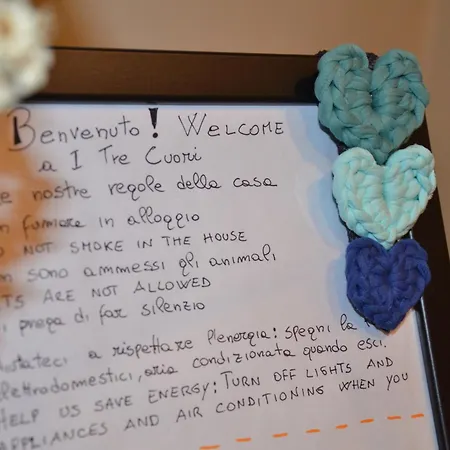 Benvenuto! WELCOME
a I Tre Cuori
e nostre regole della casa
fumare in alloggio
NOT SMOKE IN THE HOUSE
sono ammessi gli animali
ARE NOT ALLOWED
prega di far silenzio
a rispettare l'energia: spegni la
elettrodomestici, aria condizionata quando esci.
HELP US SAVE ENERGY: TURN OFF LIGHTS AND
APPLIANCES AND AIR CONDITIONING WHEN YOU